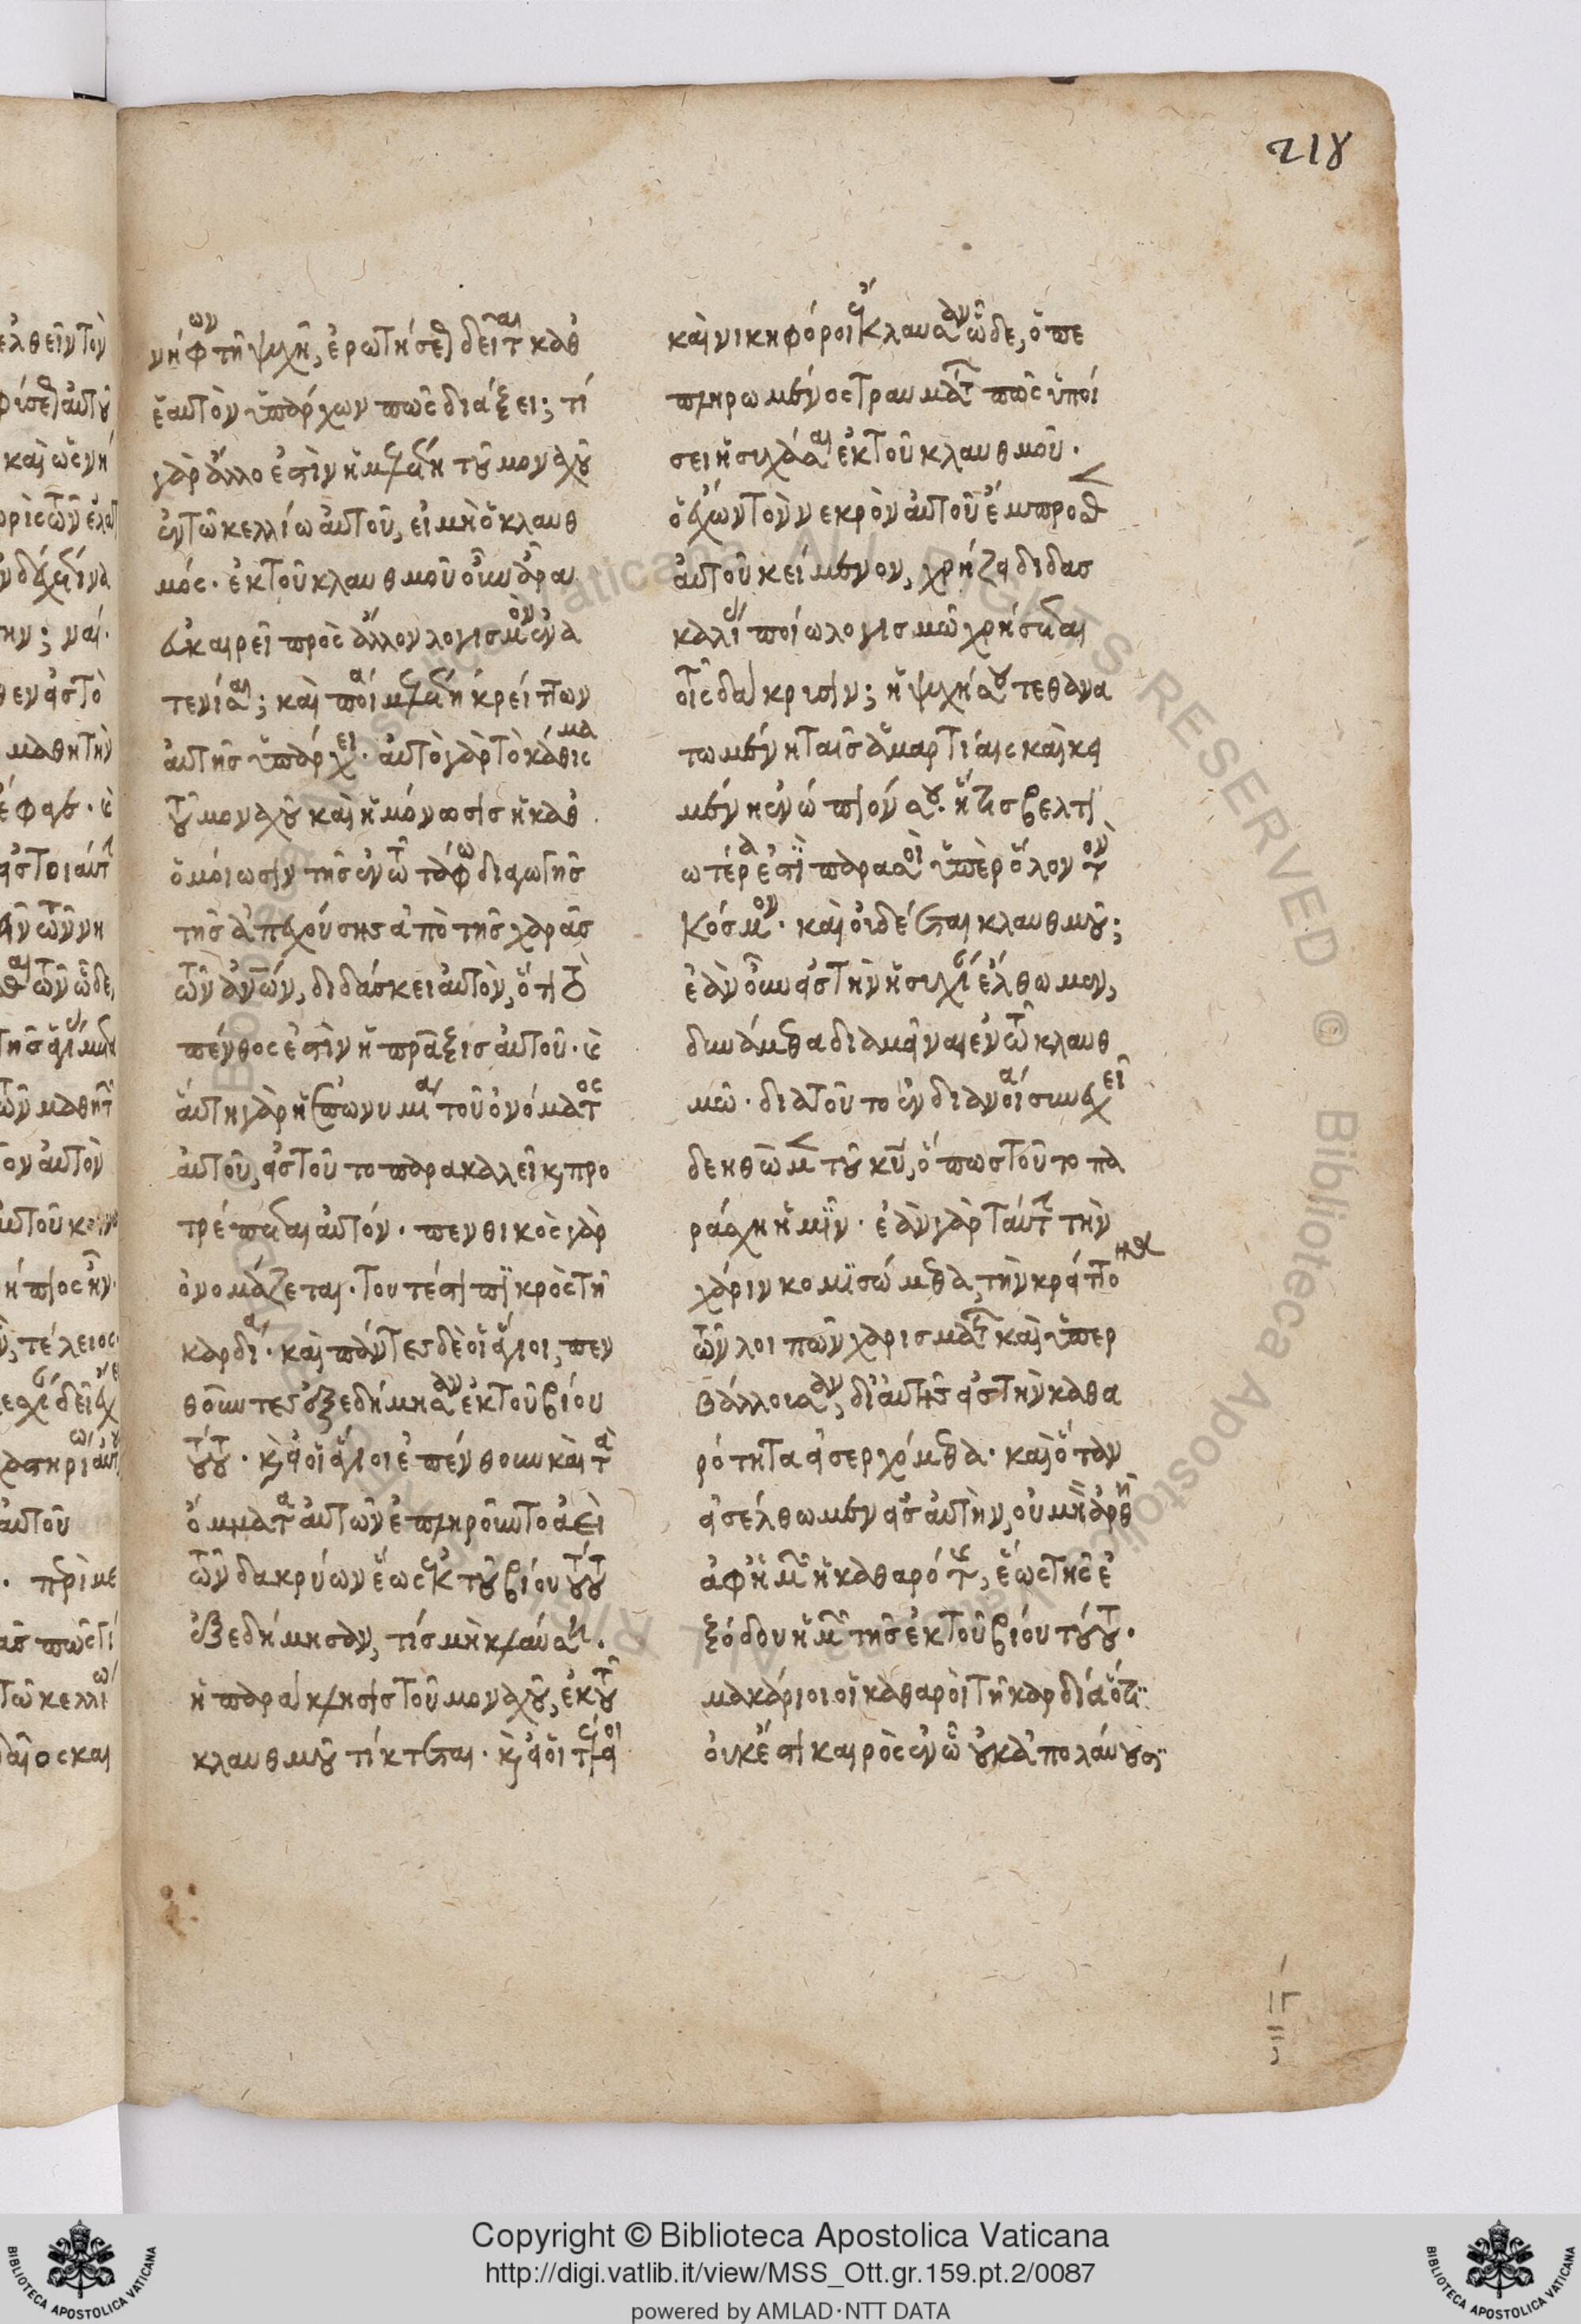 218
νήφων τῆ ψυχῆ, ἐρωτήσε δεῖται καθ
ἑαυτὸν ὑπάρχων πῶς διάξει; τί
γὰρ ἄλλο ἐστὶν ἡ μελέτη τοῦ μοναχοῦ
ἐν τῶ κελλίω αὐτοῦ, εἰ μὴ ὁ κλαυθ
μός. ἐκ τοῦ κλαυθμοῦ οὖν ἆρα
εὐκαιρεῖ πρὸς ἄλλον λογισμὸν ἵνα
τενίσαι; καὶ ποία μελέτη κρείττων
αὐτῆς ὑπάρχει. αὐτὸ γὰρ τὸ κάθισμα
τοῦ μοναχοῦ καὶ ἡ μόνωσις ἡ καθ
ὁμοίωσιν τῆς ἐν τῶ τάφω διαγωγῆς
τῆς ἀπεχούσης ἀπὸ τῆς χαρᾶς
τῶν ἀνων, διδάσκει αὐτὸν, ὅτι τὸ
πένθος ἐστὶν ἡ πρᾶξις αὐτοῦ. καὶ
αὕτη γὰρ ἡ ἐπωνυμία τοῦ ὀνόματος
αὐτοῦ, εἰς τοῦτο παρακαλεῖ καὶ προ
τρέπεται αὐτόν. πενθικὸς γὰρ
ὀνομάζεται. τουτέστι πικρὸς τῆ
καρδία. καὶ πάντες δὲ οἱ ἅγιοι, πεν
θοῦντες ἐξεδήμησαν ἐκ τοῦ βίου
τούτου. καὶ εἰ οἱ ἅγιοι ἐπένθουν καὶ τὰ
ὄμματα αὐτῶν ἐπληροῦντο ἀεὶ
τῶν δακρύων ἕως ἐκ τοῦ βίου τούτου
ἐξεδήμησαν, τίς μὴ κλαύση.
ἡ παράκλησις τοῦ μοναχοῦ, ἐκ τοῦ
κλαυθμοῦ τίκτεται. καὶ εἰ οἱ τέλειοι
καὶ νικηφόροι ἔκλαυσαν ὧδε, ὁ πε
πληρωμένος τραυμάτων πῶς ὑποί
σει ἡσυχάσαι ἐκ τοῦ κλαυθμοῦ.
ὁ ἔχων τὸν νεκρὸν αὐτοῦ ἔμπροσθεν
αὐτοῦ κείμενον, χρήζει διδασ
καλίας ποίω λογισμῶ χρήσεται
τοῖς δάκρυσιν; ἡ ψυχή σου τεθανα
τωμένη ταῖς ἁμαρτίαις καὶ κει
μένη ἐνώπιόν σου. ἥτις βελτι
ωτέρα ἐστὶ παρὰ σοὶ ὑπὲρ ὅλον τὸν
κόσμον. καὶ οὐ δέεται κλαυθμοῦ;
ἐὰν οὖν εἰς τὴν ἡσυχίαν ἔλθωμεν,
δυνάμεθα διαμεῖναι ἐν τῶ κλαυθ
μῶ. διὰ τοῦτο ἐν διανοία συνεχεῖ
δεηθῶμεν τοῦ κυ, ὅπως τοῦτο πα
ράσχη ἡμῖν. ἐὰν γὰρ ταύτην τὴν
χάριν κομισώμεθα, τὴν κρείττονα
τῶν λοιπῶν χαρισμάτων καὶ ὑπερ
βάλλουσαν, δι' αὐτῆς εἰς τὴν καθα
ρότητα εἰσερχόμεθα. καὶ ὅταν
εἰσέλθωμεν εἰς αὐτὴν, οὐ μὴ ἀρθῆ
ἀφ' ἡμῶν ἡ καθαρότης, ἕως τῆς ἐ
ξόδου ἡμῶν τῆς ἐκ τοῦ βίου τούτου.
μακάριοι οἱ καθαροὶ τῆ καρδία ὅτι
οὐκ ἔστι καιρὸς ἐν ὧ οὐκ ἀπολαύουσι
Copyright © Biblioteca Apostolica Vaticana
http://digi.vatlib.it/view/MSS_Ott.gr.159.pt.2/0087
powered by AMLAD·NTT DATA